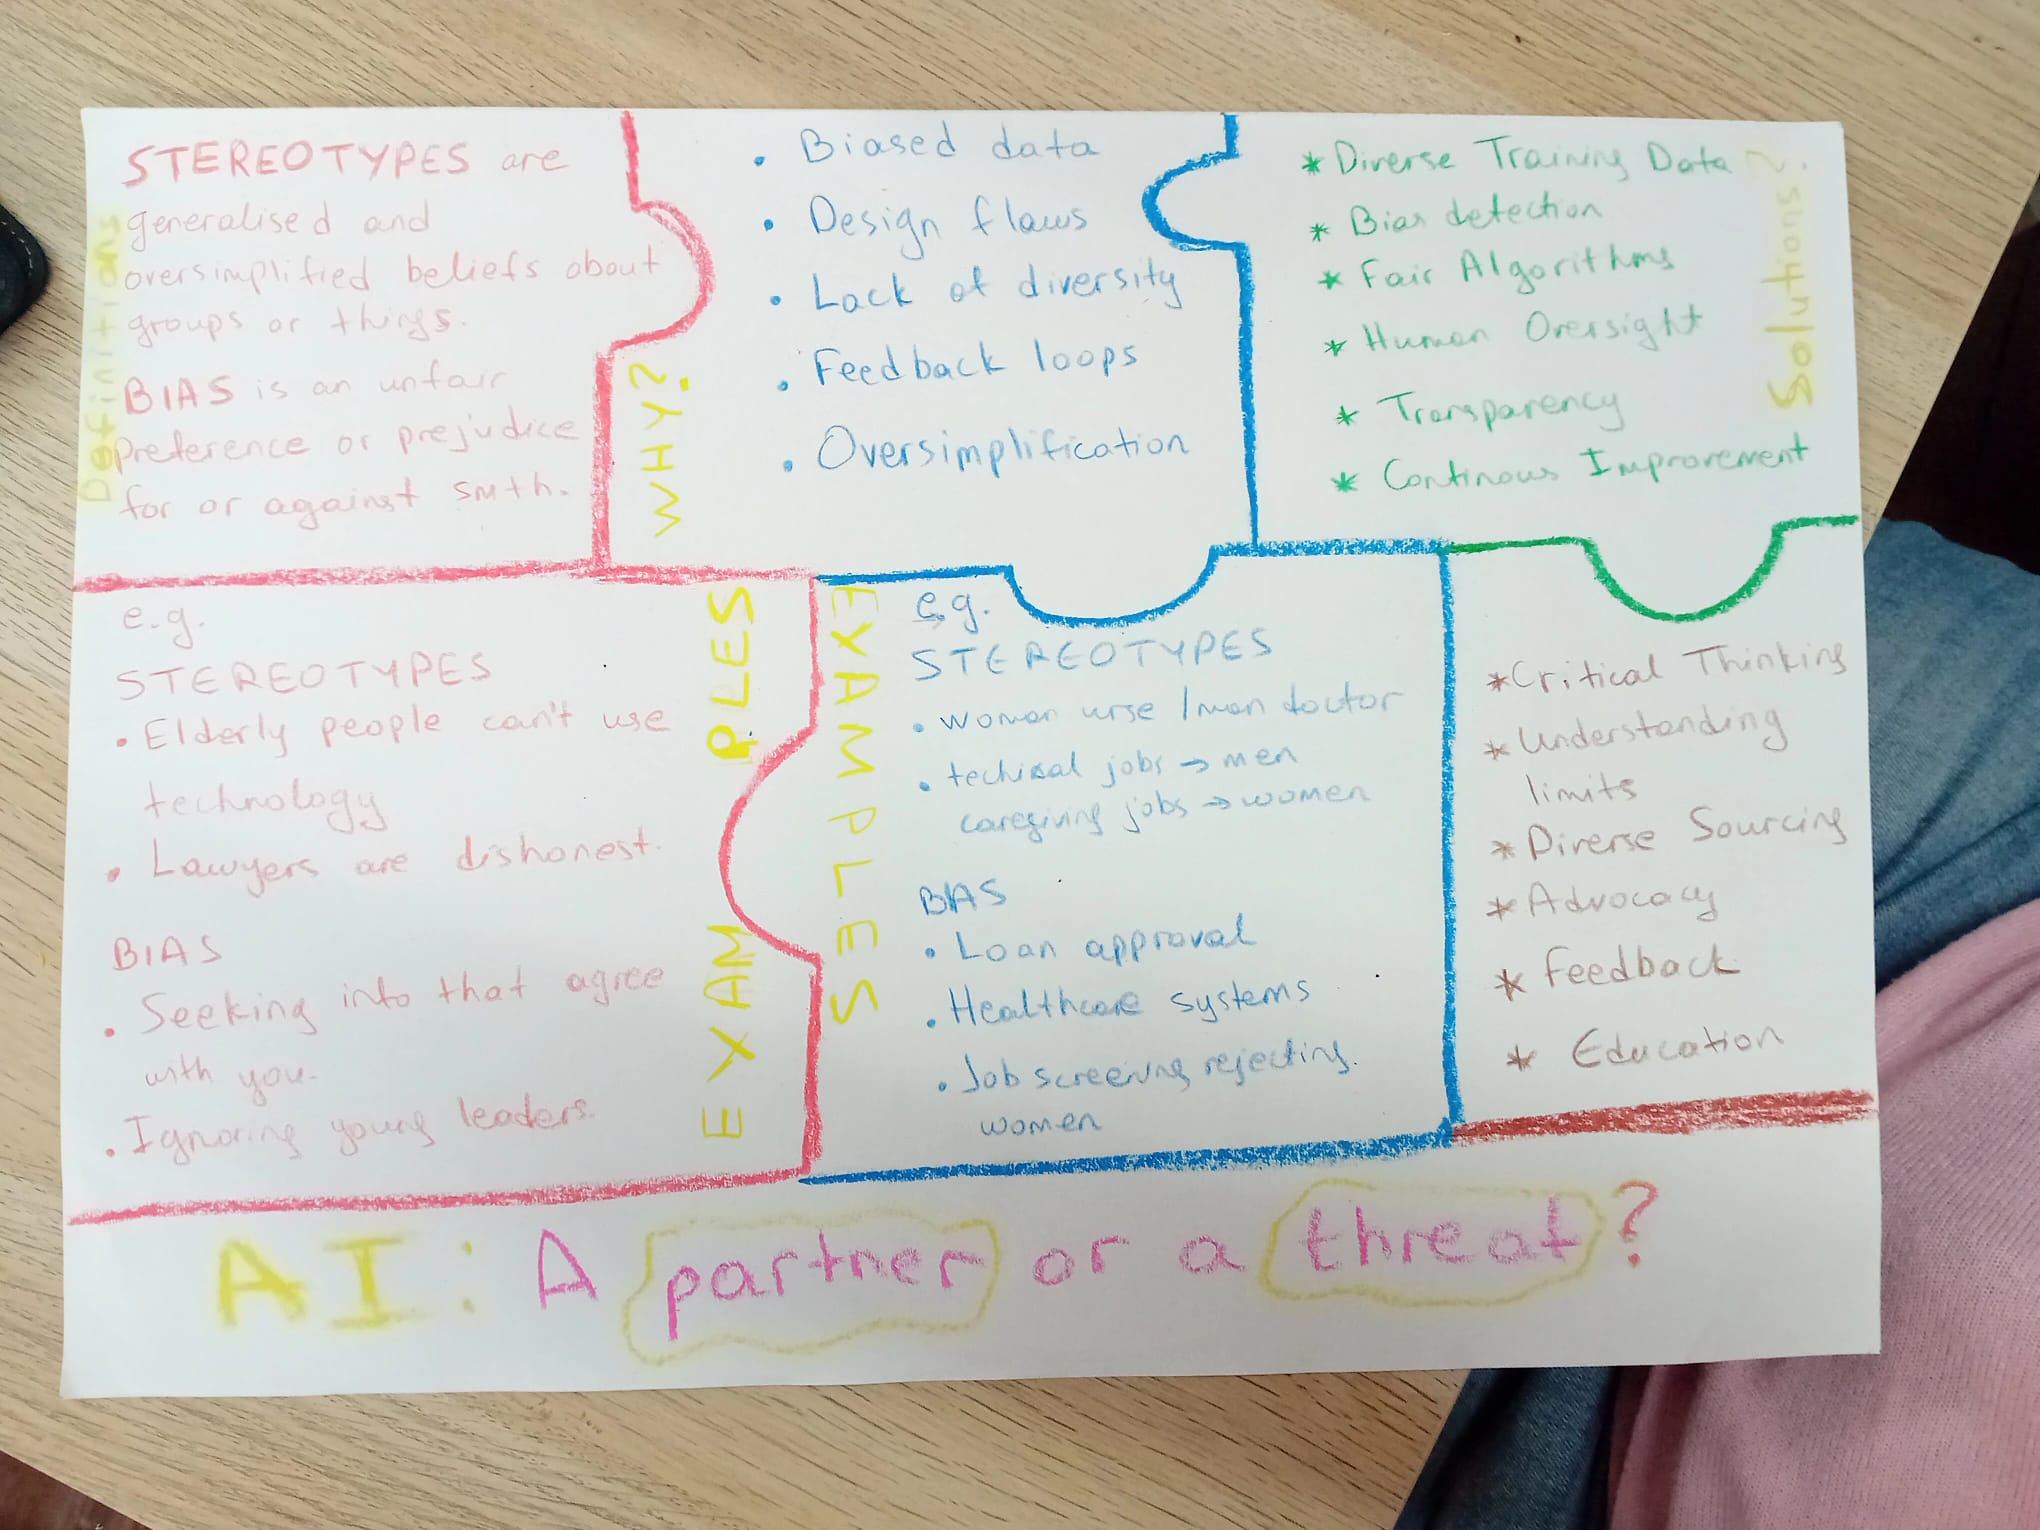 Definitions
STEREOTYPES are
generalised and
oversimplified beliefs about
groups or things.
BIAS is an unfair
preference or prejudice
for or against smth.
WHY?
• Biased data
• Design flaws
• Lack of diversity
• Feedback loops
• Oversimplification
Solutions?
* Diverse Training Data
* Bias detection
* Fair Algorithms
* Human Oversight
* Transparency
* Continous Improvement
EXAMPLES
e.g.
STEREOTYPES
• Elderly people can't use
technology
• Lawyers are dishonest.
BIAS
• Seeking info that agree
with you.
• Ignoring young leaders.
EXAMPLES
e.g.
STEREOTYPES
• woman urse / man doctor
• techical jobs → men
caregiving jobs → women
BIAS
• Loan approval
• Healthcare systems
• Job screening rejecting.
women
* Critical Thinking
* Understanding
limits
* Diverse Sourcing
* Advocacy
* Feedback
* Education
AI: A partner or a threat?